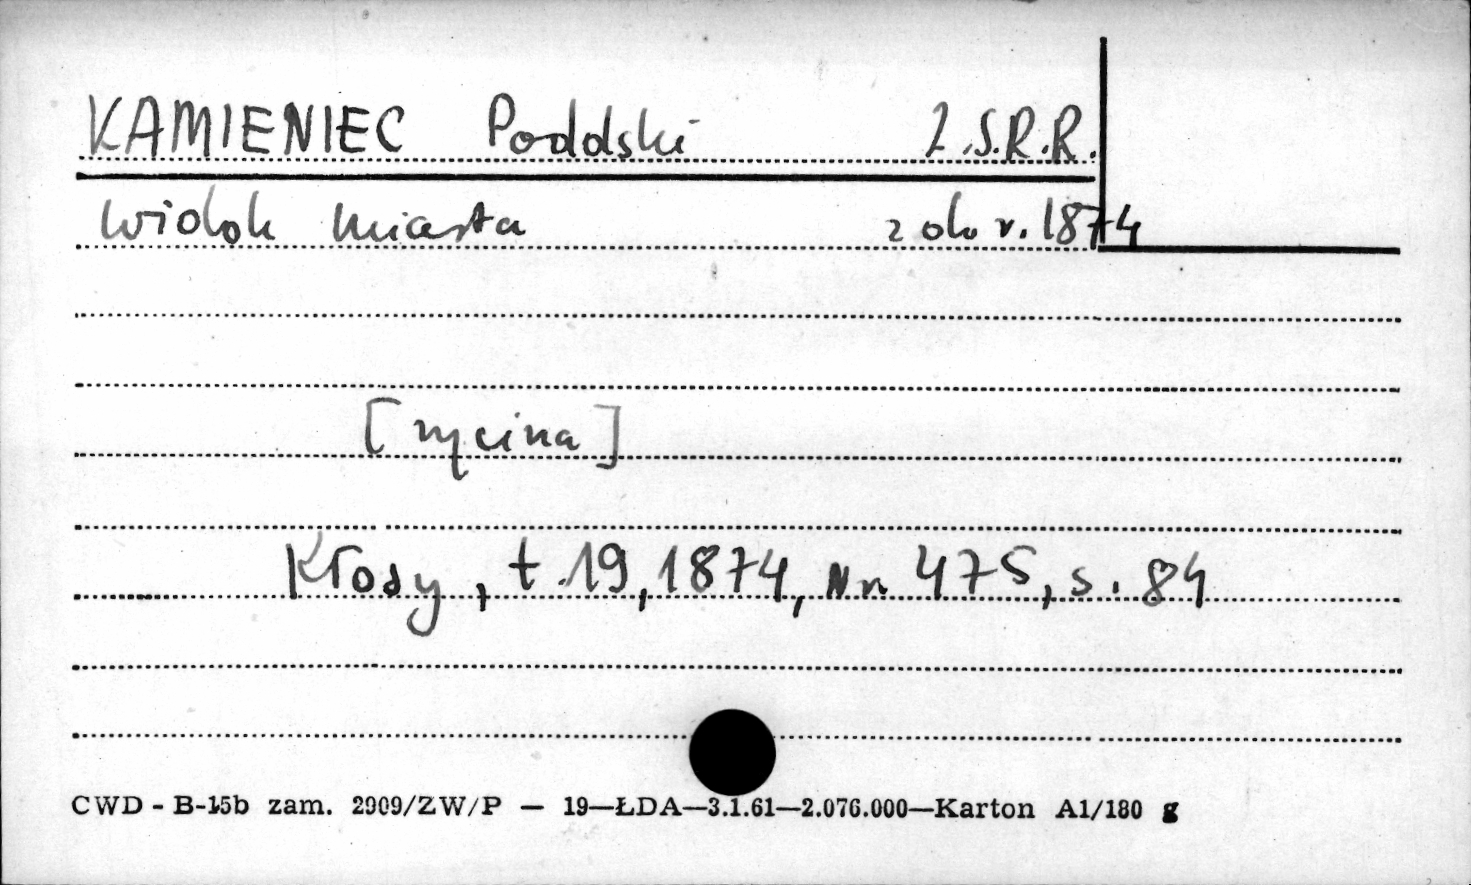 KAMIENIEC Podolski Z.S.R.R.
Widok miasta z ok r. 1874
[rycina]
Kłosy, t. 19, 1874, Nr 475, s. 84
CWD - B-15b zam. 2909/ZW/P — 19—ŁDA—3.1.61—2.076.000—Karton A1/180 g